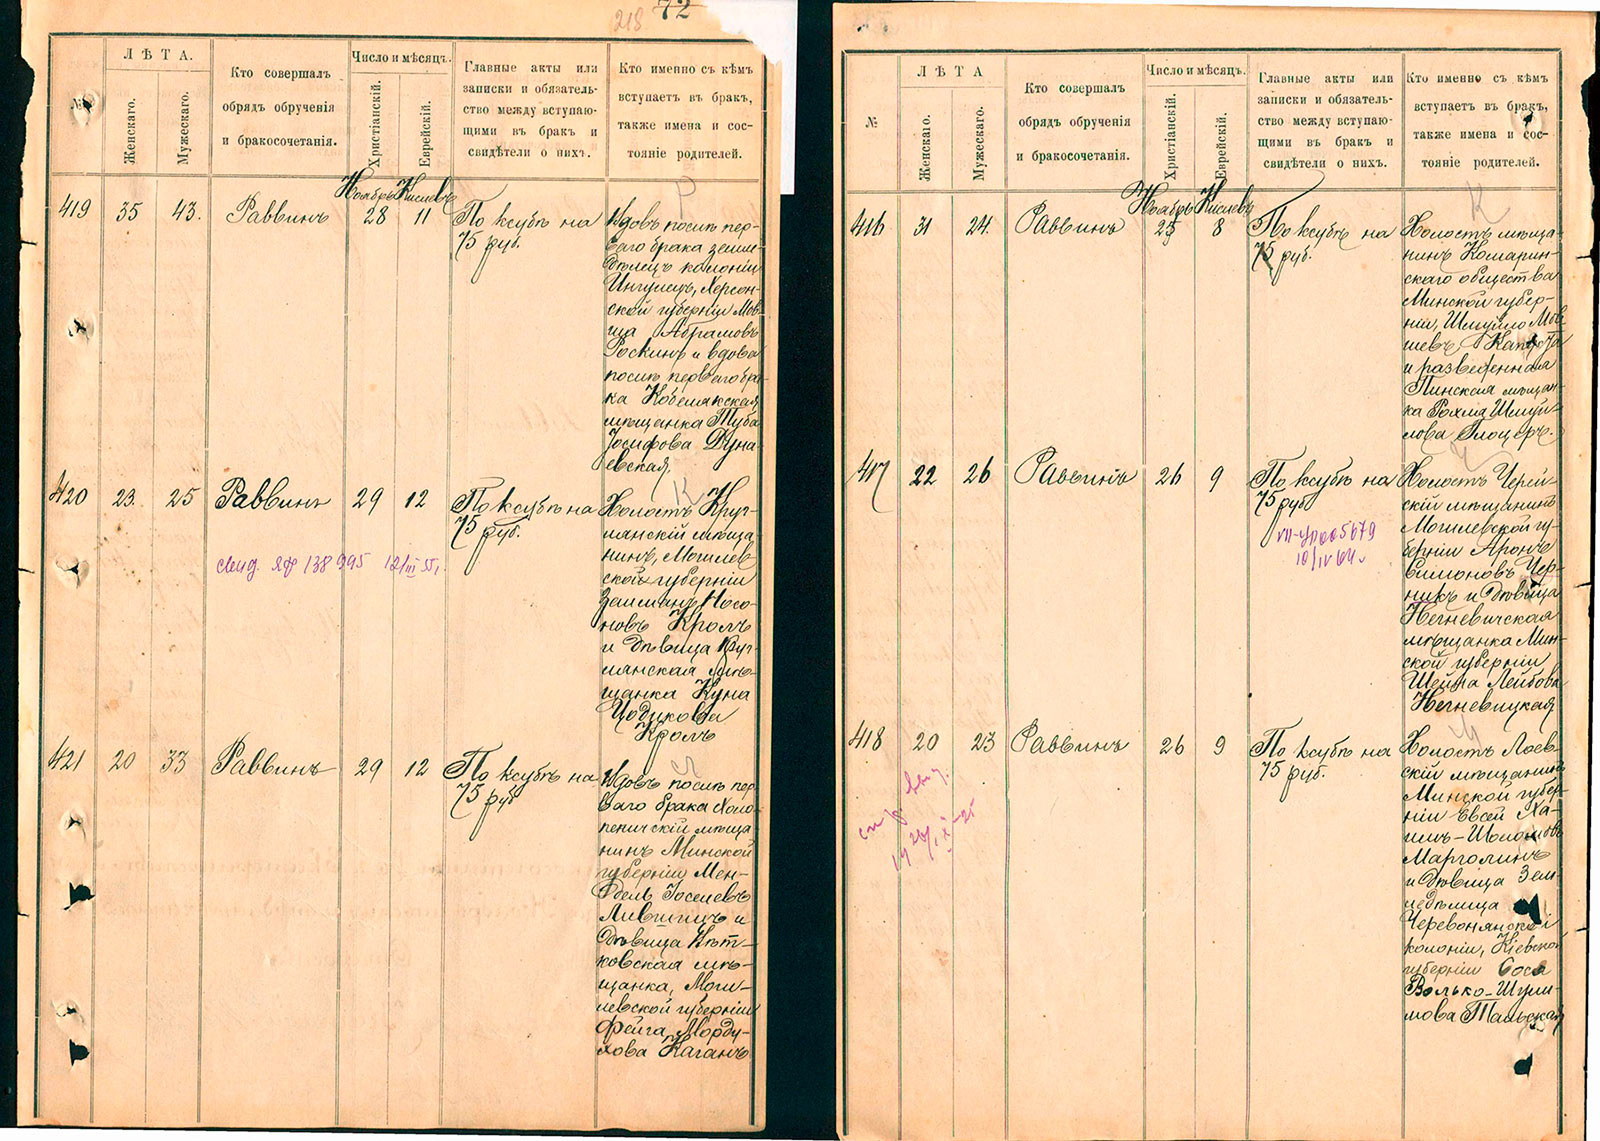 218 72
Л Ѣ Т А.
Число и мѣсяцъ.
№
Женскаго.
Мужескаго.
Кто совершалъ
обрядъ обрученія
и бракосочетанія.
Христіанскій.
Еврейскій.
Главные акты или
записки и обязатель-
ство между вступаю-
щими въ бракъ и
свидѣтели о нихъ.
Кто именно съ кѣмъ
вступаетъ въ бракъ,
также имена и сос-
тояніе родителей.
Р
Ноябрь Кислевъ
419 35 43. Раввинъ 28 11 По ксубѣ на
75 руб.
Вдовъ послѣ пер-
ваго брака земле-
дѣлецъ колоніи
Ингулецъ, Херсон-
ской губерніи Мов-
ша Абрамовъ
Роскинъ и вдова
послѣ перваго бра-
ка Кобелякская
мѣщанка Туба
Іосифова Дуна-
евская.
К
420 23. 25 Раввинъ 29 12 По ксубѣ на
75 руб.
свид. ЯФ 138995 12/III 55 г.
Холостъ Круг-
лянскій мѣща-
нинъ, Могилев-
ской губерніи
Залманъ Носо-
новъ Кролъ
и дѣвица Круг-
лянская мѣ-
щанка Куна
Цодикова
Кролъ
421 20 33 Раввинъ 29 12 По ксубѣ на
75 руб
Вдовъ послѣ пер
ваго брака Холо-
пеничскій мѣща
нинъ Минской
губерніи Мен-
дель Іоселевъ
Лившицъ и
дѣвица Вѣт-
ковская мѣ-
щанка, Моги-
левской губерніи
Фейга Морду-
хова Каганъ
Л Ѣ Т А
Число и мѣсяцъ.
№
Женскаго.
Мужескаго.
Кто совершалъ
обрядъ обрученія
и бракосочетанія.
Христіанскій.
Еврейскій.
Главные акты или
записки и обязатель-
ство между вступаю-
щими въ бракъ и
свидѣтели о нихъ.
Кто именно съ кѣмъ
вступаетъ въ бракъ,
также имена и сос-
тояніе родителей.
К
Ноябрь Кислевъ
416 31 24. Раввинъ 25 8 По ксубѣ на
75 руб.
Холостъ мѣща-
нинъ Комарин-
скаго общества
Минской губер-
ніи, Шмуйло Мов-
шевъ
и разведенная
Пинская мѣщан-
ка Рохма Шмуй-
лова Глоцеръ.
417 22 26 Раввинъ 26 9 По ксубѣ на
75 руб
10/IV 64 г.
Холостъ Черей-
скій мѣщанинъ
Могилевской гу-
берніи Аронъ
Симоновъ Чер-
никъ и дѣвица
Негневичская
мѣщанка Мин-
ской губерніи
Шейна Лейбова
Негневицкая
418 20 23 Раввинъ 26 9 По ксубѣ на
75 руб.
Холостъ Лоев-
скій мѣщанинъ
Минской губер-
ніи Евсей Ха-
имъ-Шоломовъ
Марголинъ
и дѣвица Зем-
ледѣлица
Червонянской
колоніи, Кіевской
губерніи Сося
Волько-Шули-
мова Тальская